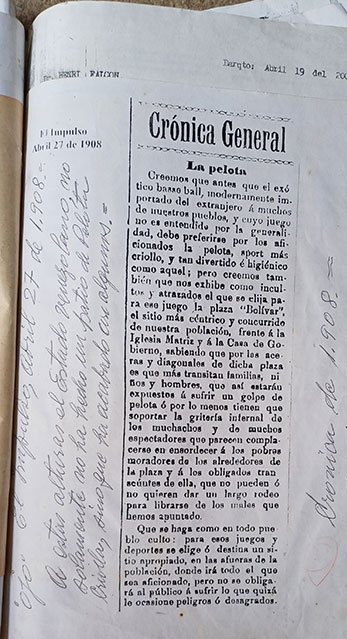 HENRI FALCON
Barqto; Abril 19 del 200
El Impulso
Abril 27 de 1908
Crónica General
La pelota
Creemos que antes que el exó
tico basso ball, modernamente im
portado del extranjero á muchos
de nuestros pueblos, y cuyo juego
no es entendido por la generali-
dad, debe preferirse por los afi-
cionados la pelota, sport más
criollo, y tan divertido é higiénico
como aquel; pero creemos tam-
bién que nos exhibe como incul-
tos y atrazados el que se elija pa
ra eso juego la plaza "Bolívar",
el sitio más céntrico y concurrido
de nuestra población, frente á la
Iglesia Matriz y á la Casa de Go-
bierno, sabiendo que por las ace-
ras y diagonales de dicha plaza
es que más transitan familias, ni
ños y hombres, que así estarán
expuestos á sufrir un golpe de
pelota ó por lo menos tienen que
soportar la gritería infernal de
los muchachos y de muchos
espectadores que parecen compla-
cerse en ensordecer á los pobres
moradores de los alrededores de
la plaza y á los obligados tran-
seúntes de ella, que no pueden ó
no quieren dar un largo rodeo
para librarse de los males que
hemos apuntado.
Que se haga como en todo pue
blo culto: para esos juegos y
deportes se elige ó destina un si-
tio apropiado, en las afueras de la
población, donde irá todo el que
sea aficionado, pero no se obliga-
rá al público á sufrir lo que quizá
le ocasione peligros ó desagrados.
ojo: El Impulso, abril 27 de 1.908.=
A estas alturas el estado venezolano, no
solamente no ha hecho un patio de Pelota
Criolla, sino que ha acabado con algunos.=
Crónica de 1.908.=